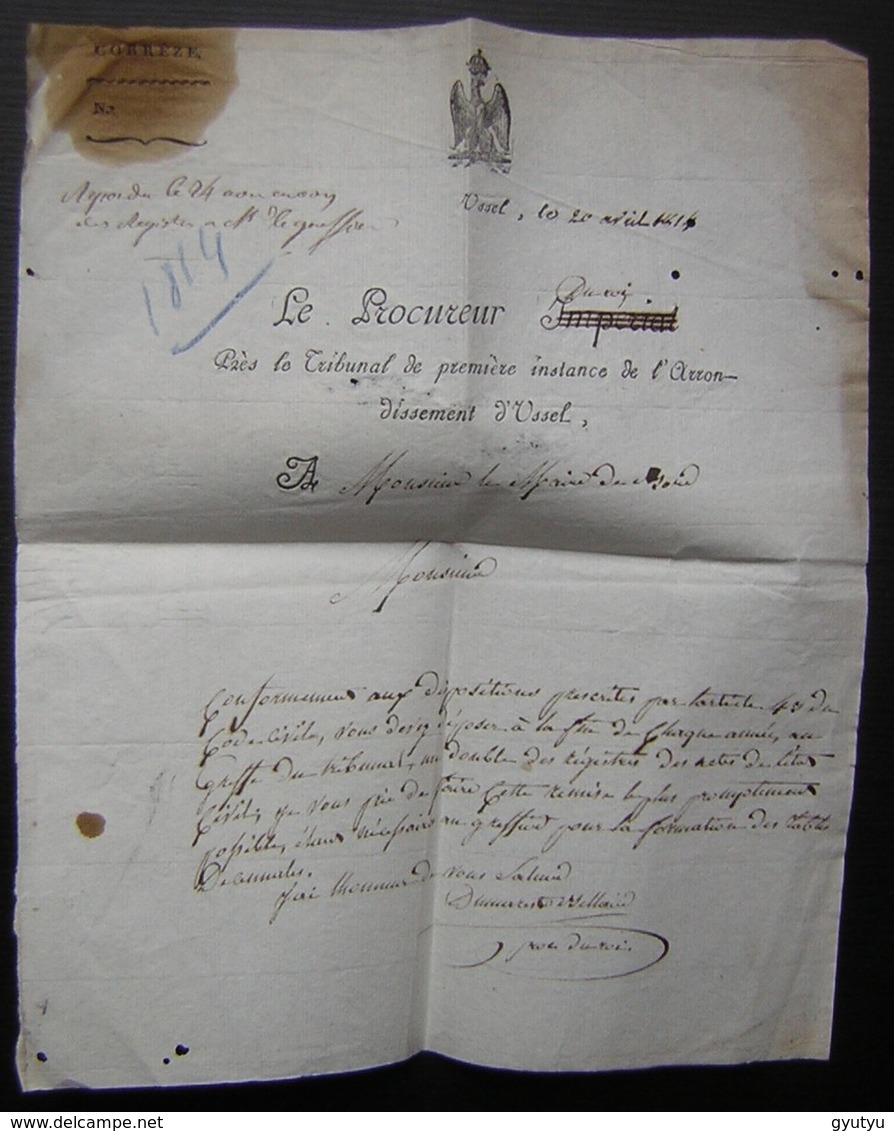 CORRÈZE,
No.
Repondu le 24
des Registres a Mr le greffier
1814
Ussel, le 20 avril 1814
Du roi
Le Procureur Impérial
Près le Tribunal de première instance de l'Arron-
dissement d'Ussel,
A Monsieur le Maire de
Monsieur
Conformement aux dispositions prescrites par l'article 43 du
Code Civile, vous devez déposer à la fin de Chaque année, au
greffe du tribunal, un double des régistres des actes de l'état
Civil, je vous prie de faire Cette remise le plus promptement
possible, étant nécessaire au greffier pour la formation des tables
Decennales.
J'ai l'honneur de vous Saluer
proc du roi
delcampe.net
gyutyu